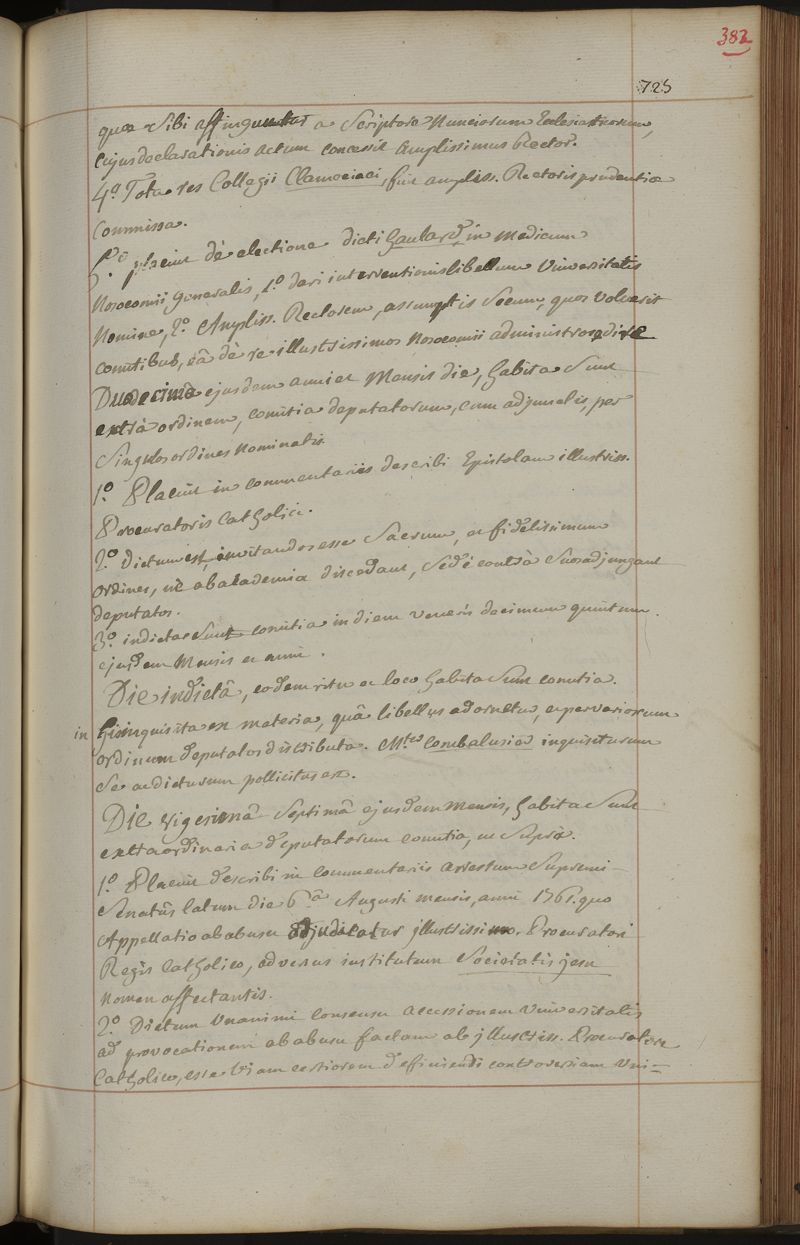 382
725
quæ sibi affinguntur a Scriptore Nunciorum Ecclesiasticorum,
cujus declarationis actum concessit Amplissimus Rector.
4.º Tota res Collegii Clamociaci, fuit ampliss. Rectoris prudentiæ
commissa.
5.º placuit de electione dicti Gaulard in Medicum
Nosocomii generalis, 1.º dari interventionis libellum Universitatis
Nomine, 2.º Ampliss. Rectorem, assumptis secum, quos voluerit
comitibus, eâ dè re illustrissimos Nosocomii administros adire
Duodecimâ ejusdem anni et Mensis die, habita sunt
extrà ordinem, comitia deputatorum, cum adjunctis, per
Singulos ordines nominatis.
1.º Placuit in commentariis describi Epistolam illustriss.
Procuratoris Catholici.
2.º dictum est, invitandos esse Sacrum, ac fidelissimum
ordines, nè ab academia discedant, sed è contrà suos adjungant
deputatos.
3.º indicta sunt comitia in diem veneris decimum quintum
ejusdem Mensis et anni.
Die indictâ, eodem ritu ac loco habita sunt comitia.
in his inquisita est materia, quâ libellus adornetur, et per variorum
ordinum deputatos distributa. M.ter Combalusier inquisiturum
se ac dicturum pollicitus est.
Die vigesimâ septimâ ejusdem mensis, habita sunt
extraordinaria deputatorum comitia, ut suprà.
1.º Placuit describi in commentariis arrestum Supremi
Senatûs latum die 6.â Augusti mensis, anni 1761. quo
Appellatio ab abusu adjudicatur illustrissimo. Procuratori
Regis Catholico, adversus institutum Societatis jesu
nomen affectantis.
2.º Dictum Unanimi consensu accessionem Universitatis
ad provocationem ab abusu factam ab illustriss. Procuratore
Catholico, esse viam certiorem definiendi controversiam Uni=